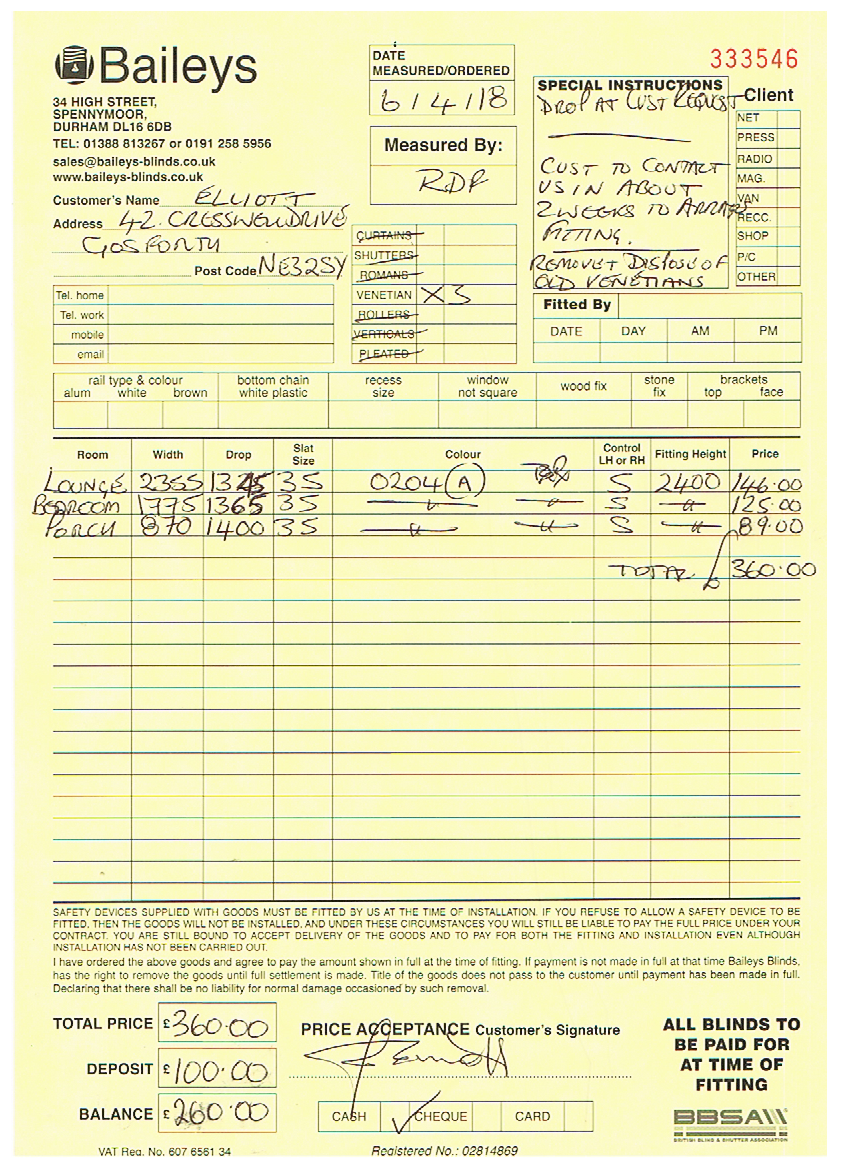 Baileys
34 HIGH STREET,
SPENNYMOOR,
DURHAM DL16 6DB
TEL: 01388 813267 or 0191 258 5956
sales@baileys-blinds.co.uk
www.baileys-blinds.co.uk
DATE
MEASURED/ORDERED
6/4/18
Measured By:
RDP
333546
SPECIAL INSTRUCTIONS
DROP AT CUST REQUEST
CUST TO CONTACT
US IN ABOUT
2 WEEKS TO ARRANGE
FITTING.
REMOVE + DISPOSE OF
OLD VENETIANS
Client
NET
PRESS
RADIO
MAG.
VAN
RECC.
SHOP
P/C
OTHER
Customer's Name ELLIOTT
Address 42. CRESSWELL DRIVE
GOSFORTH
Post Code NE3 2SY
Tel. home
Tel. work
mobile
email
CURTAINS
SHUTTERS
ROMANS
VENETIAN X3
ROLLERS
VERTICALS
PLEATED
Fitted By
DATE DAY AM PM
rail type & colour bottom chain recess window wood fix stone brackets
alum white brown white plastic size not square fix top face
Room Width Drop Slat Size Colour Control LH or RH Fitting Height Price
LOUNGE 2355 1345 35 0204 (A) S 2400 146.00
BEDROOM 1775 1365 35 " " S " 125.00
PORCH 870 1400 35 " " S " 89.00
TOTAL £360.00
SAFETY DEVICES SUPPLIED WITH GOODS MUST BE FITTED BY US AT THE TIME OF INSTALLATION. IF YOU REFUSE TO ALLOW A SAFETY DEVICE TO BE
FITTED, THEN THE GOODS WILL NOT BE INSTALLED, AND UNDER THESE CIRCUMSTANCES YOU WILL STILL BE LIABLE TO PAY THE FULL PRICE UNDER YOUR
CONTRACT. YOU ARE STILL BOUND TO ACCEPT DELIVERY OF THE GOODS AND TO PAY FOR BOTH THE FITTING AND INSTALLATION EVEN ALTHOUGH
INSTALLATION HAS NOT BEEN CARRIED OUT.
I have ordered the above goods and agree to pay the amount shown in full at the time of fitting. If payment is not made in full at that time Baileys Blinds,
has the right to remove the goods until full settlement is made. Title of the goods does not pass to the customer until payment has been made in full.
Declaring that there shall be no liability for normal damage occasioned by such removal.
TOTAL PRICE £360.00
DEPOSIT £100.00
BALANCE £260.00
PRICE ACCEPTANCE Customer's Signature
CASH ✓ CHEQUE CARD
ALL BLINDS TO
BE PAID FOR
AT TIME OF
FITTING
BBSA
BRITISH BLIND & SHUTTER ASSOCIATION
VAT Reg. No. 607 6561 34
Registered No.: 02814869